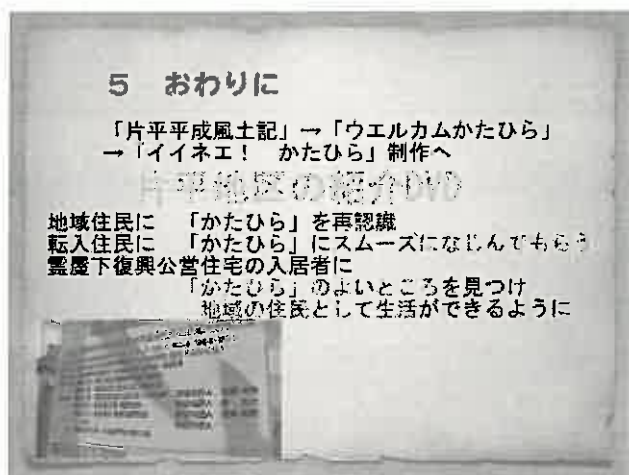 5 おわりに
「片平平成風土記」→「ウエルカムかたひら」
→「イイネエ! かたひら」制作へ
片平地区の紹介DVD
地域住民に 「かたひら」を再認識
転入住民に 「かたひら」にスムーズになじんでもらう
霊屋下復興公営住宅の入居者に
「かたひら」のよいところを見つけ
地域の住民として生活ができるように